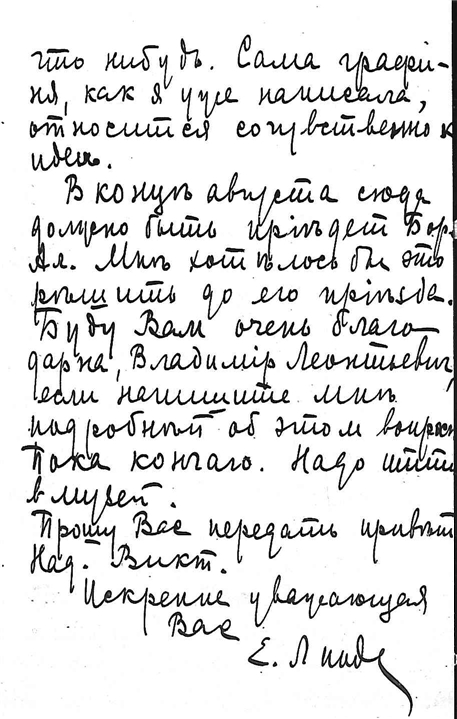 что нибудь. Сама графи-
ня, как я уже написала,
относится сочувственно к
идеи.
В концѣ августа сюда
должно быть пріѣдет Бор.
Ал. Мнѣ хотѣлось бы это
рѣшить до его пріѣзда.
Буду Вам очень благо-
дарна, Владимір Леонтьевич,
если напишите мнѣ
подробнѣй об этом вопрос
Пока кончаю. Надо итти
в музей.
Прошу Вас передать привѣт
Над. Викт.
Искренне уважающая
Вас
Е. Линде